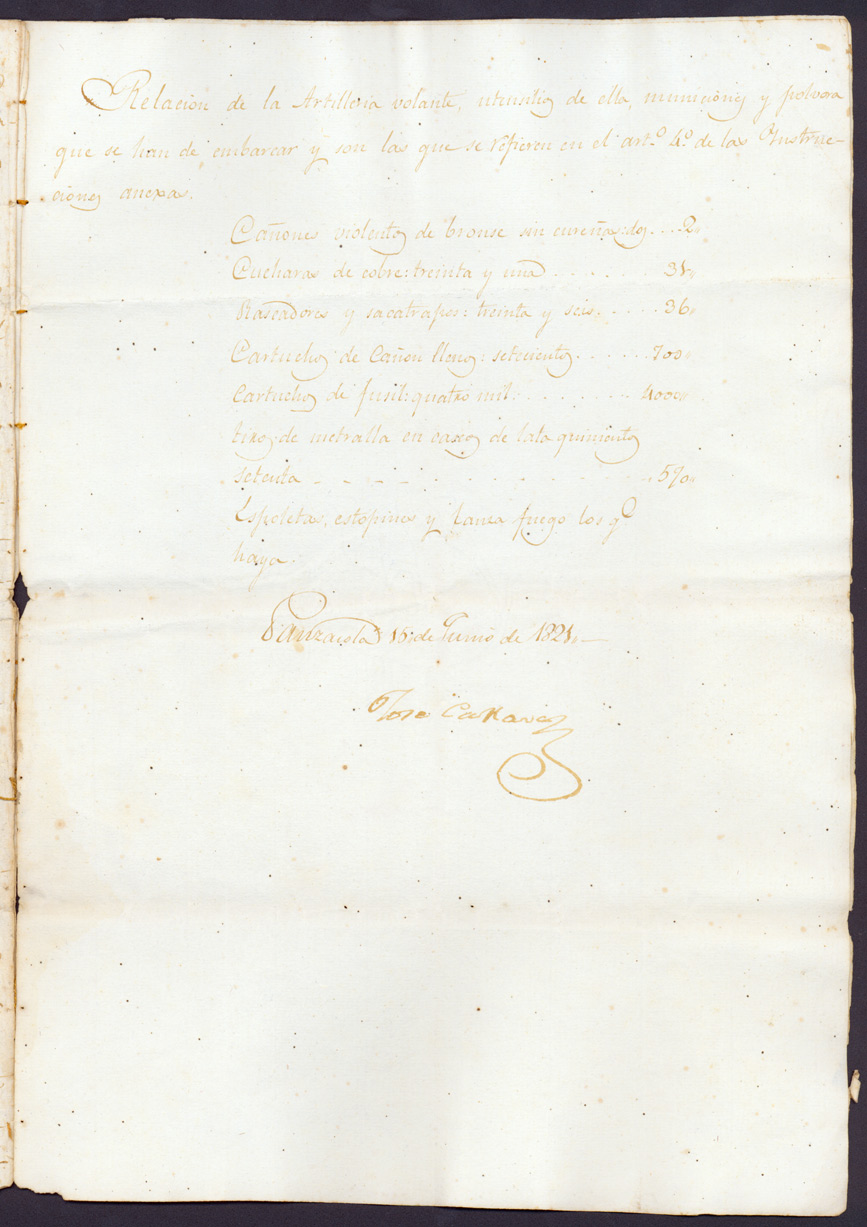 Relacion de la Artilleria volante, utensilios de ella, municiones y polvora
que se han de embarcar y son las que se refieren en el art.º 4.º de las Ynstruc-
ciones anexas.
Cañones violentos de bronse sin cureñas: dos.... 2,,
Cucharas de cobre: treinta y una....... 31,,
Rascadores y sacatrapos: treinta y seis..... 36,,
Cartuchos de Cañon llenos: setecientos...... 700,,
Cartuchos de fusil: quatro mil........ 4000,,
tiros de metralla en vasos de lata quinientos
setenta - - - - ...... 570,,
Espoletas, estopines y lanza fuego los q.e
haya.
Panzacola 15 de Junio de 1821.,—
Jose Callava